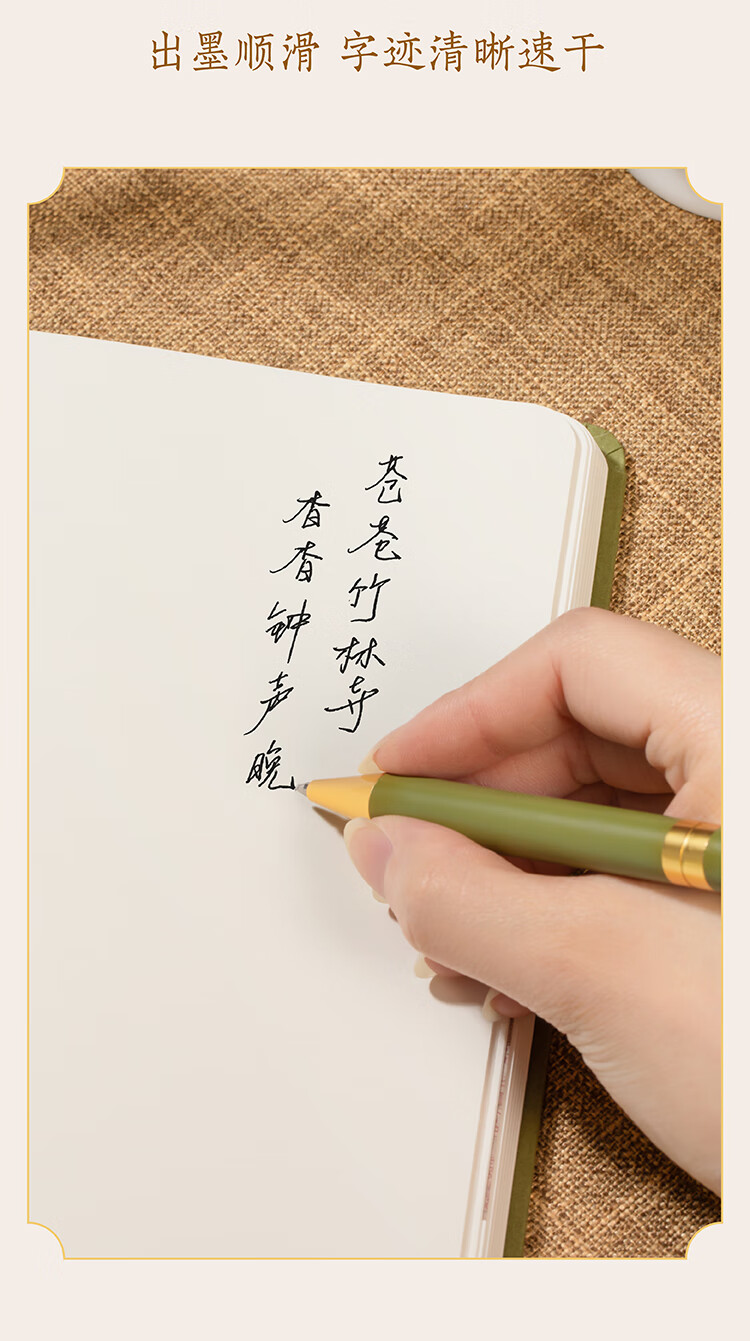 出墨顺滑 字迹清晰速干
苍苍竹林寺
杳杳钟声晚